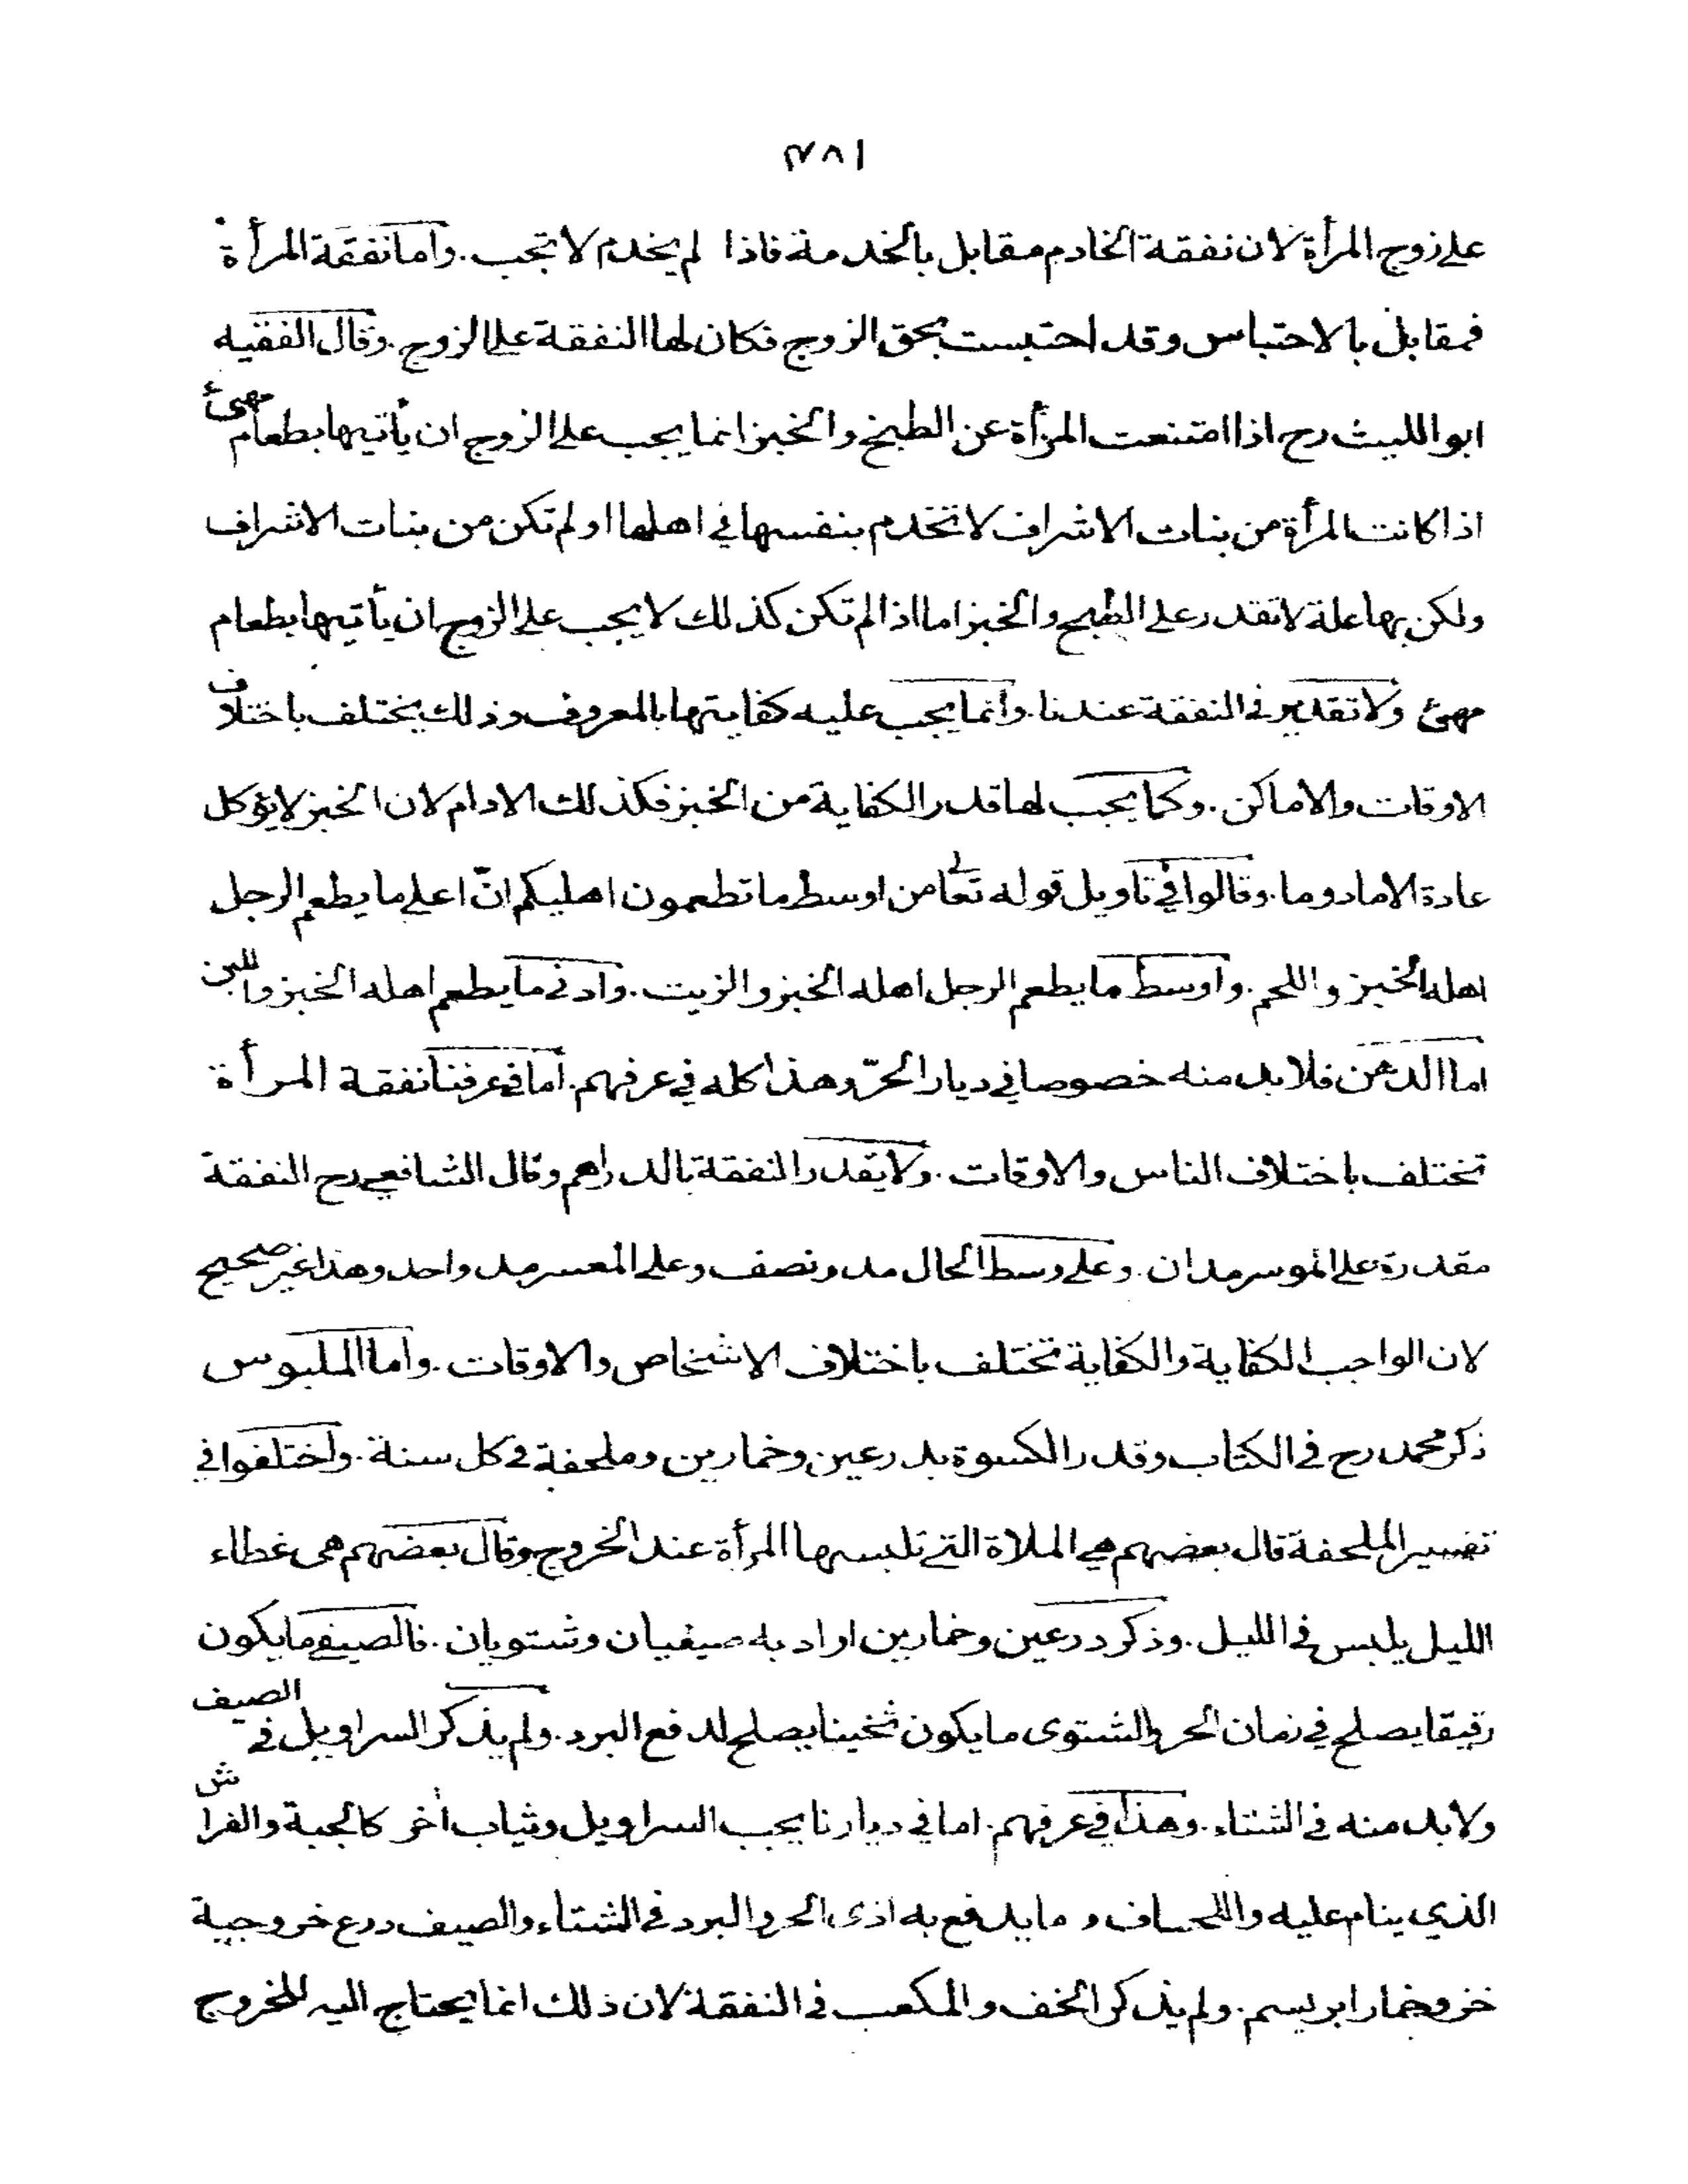 ٣٨١
على زوج المرأة لان نفقة الخادم مقابل بالخدمة فاذا لم يخدم لا تجب. واما نفقة المرأة
فمقابل بالاحتباس وقد احتبست بحق الزوج فكان لها النفقة على الزوج. وقال الفقيه
ابو الليث رح اذا امتنعت المرأة عن الطبخ والخبز انما يجب على الزوج ان يأتيها بطعام مهئ
اذا كانت المرأة من بنات الاشراف لا تخدم بنفسها في اهلها او لم تكن من بنات الاشراف
ولكن بها علة لا تقدر على الطبخ والخبز اما اذا لم تكن كذلك لا يجب على الزوج ان يأتيها بطعام
مهئ ولا تقدير في النفقة عندنا. وانما يجب عليه كفايتها بالمعروف وذلك يختلف باختلاف
الاوقات والاماكن. وكما يجب لها قدر الكفاية من الخبز فكذلك الادام لان الخبز لا يؤكل
عادة الا مادوما. وقالوا في تاويل قوله تعالى من اوسط ما تطعمون اهليكم انّ اعلى ما يطعم الرجل
اهله الخبز واللحم. واوسط ما يطعم الرجل اهله الخبز والزيت. وادنى ما يطعم اهله الخبز واللبن
اما الدهن فلا بد منه خصوصا في ديار الحرّ وهذا كله في عرفهم. اما في عرفنا نفقة المرأة
تختلف باختلاف الناس والاوقات. ولا يقدر النفقة بالدراهم وقال الشافعي رح النفقة
مقدرة على الموسر مدان. وعلى وسط الحال مد ونصف وعلى المعسر مد واحد وهذا غير صحيح
لان الواجب الكفاية والكفاية تختلف باختلاف الاشخاص والاوقات. واما الملبوس
ذكر محمد رح في الكتاب وقدر الكسوة بدرعين وخمارين وملحفة في كل سنة. واختلفوا في
تفسير الملحفة قال بعضهم هي الملاة التي تلبسها المرأة عند الخروج وقال بعضهم هى غطاء
الليل يلبس في الليل. وذكر درعين وخمارين اراد به صيفيان وشتويان. فالصيفي ما يكون
رقيقا يصلح في زمان الحر والشتوى ما يكون ثخينا يصلح لدفع البرد. ولم يذكر السراويل في الصيف
ولا بد منه في الشتاء. وهذا في عرفهم. اما في ديارنا يجب السراويل وثياب أخر كالجبة والفراش
الذي ينام عليه واللحاف و ما يدفع به اذى الحر والبرد في الشتاء والصيف درع خز وجبة
خز وخمار ابريسم. ولم يذكر الخف والمكعب في النفقة لان ذلك انما يحتاج اليه للخروج